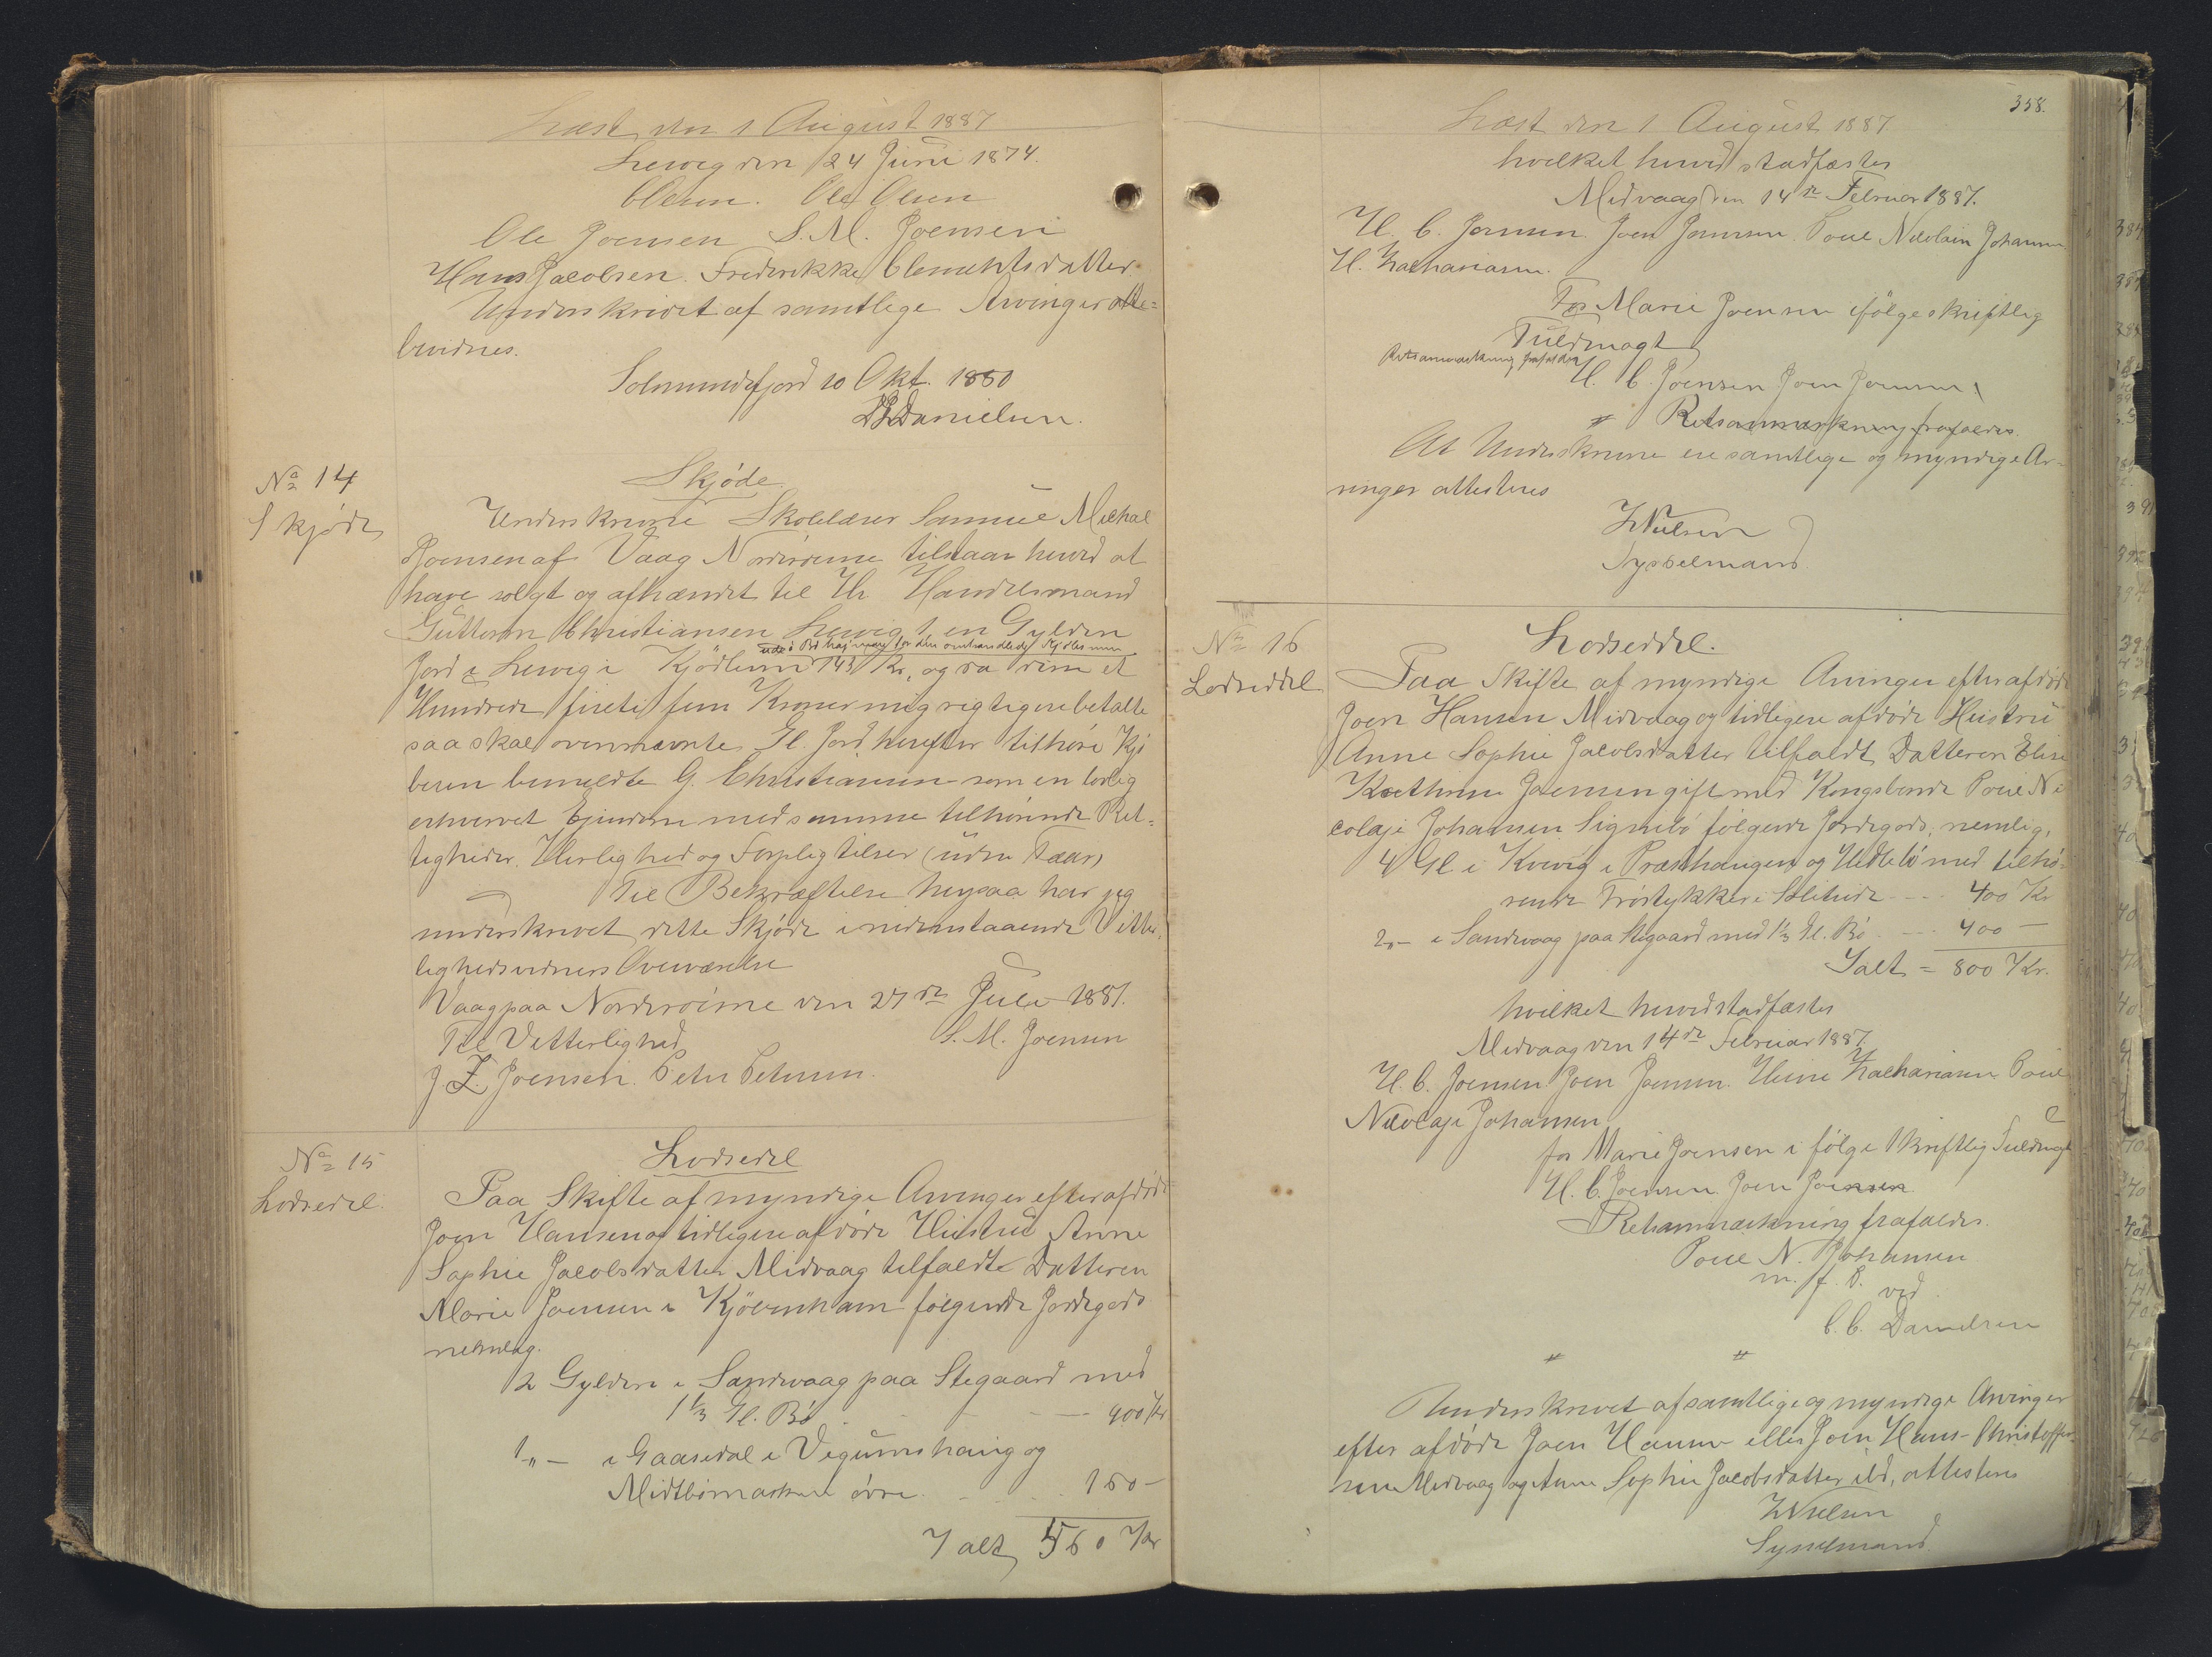 Læst den 1 August 1887
Lervig den 24 Juni 1874.
Olsen. Ole Olsen
Ole Joensen S. M. Joensen
Hans Jacobsen. Frederikke Clementsdatter.
Underskrivet af samtlige Arvinger atte=
bevidnes.
Solmundefjord 10 Okt. 1880
Danielsen.
No 14
Skjøde
Skjøde
Underskrevne Skolelærer Samuel Michal
Joensen af Vaag Norderøerne tilstaar herved at
have solgt og afhændet til Hr Handelsmand
Guttorm Christiansen Lervig 1 en Gylden
Jord i Lervig i 145 Kr, og da disse et
Hundrede fireti fem Kroner mig rigtigere betalte
saa skal ovennævnte Gl. Jord herefter tilhøre Kjø
beren bemeldte G. Christiansen som en lovlig
erhvervet Ejendom med samme tilhørende Ret=
tigheder. Herlighed og Forpligtelser (uden Faar)
Til Bekræftelse herpaa har jeg
underskrevet dette Skjøde i nedenstaaende Vitter
lighedsvidners Overværelse
Vaag paa Norderøerne den 27de Juli 1881.
Til Vitterlighed S. M. Joensen
J. Z. Joensen. Peter Petersen.
No 15
Lodsedel
Lodsedel
Paa Skifte af myndige Arvinger efter afdøde
Joen Hansen og tidligere afdøde Hustru Anne
Sophie Jacobsdatter Midvaag tilfaldt Datteren
Marie Joensen i Kjöbenhavn følgende Jordegods
nemlig.
2 Gylden i Sandevaag paa Stegaard med
1 1/3 Gl. Bø 400 Kr
1 „ — i Gaasedal i og
øvre 160 —
I alt 560 Kr
358.
Læst den 1 August 1887
hvilket herved stadfæstes
Midvaag den 14de Februar 1887.
H. C. Joensen. Joen Joensen. Poul Nicolai Johansen.
H. Zachariasen.
For Marie Joensen ifølge skriftlig
Fuldmagt
Retsanmærkning frafaldes
H. C. Joensen Joen Joensen
# Retsanmærkning frafaldes.
At Underskrevne ere samtlige og myndige Ar=
vinger attesteres
Nielsen
Sysselmand
No 16
Lodseddel
Lodseddel.
Paa Skifte af myndige Arvinger efter afdøde
Joen Hansen Midvaag og tidligere afdøde Hustru
Anne Sophie Jacobsdatter tilfaldt Datteren Elise
Kathrine Joensen gift med Kongsbonde Poul Ni
colaj Johansen Signebø følgende Jordegods, nemlig,
4 Gl i Kvivig i og med tilhø-
rende Trøstykker i 400 Kr
2 „ — i Sandevaag paa Stegaard med 1 1/3 Gl. Bø 400 —
Ialt = 800 Kr.
hvilket herved stadfæstes
Midvaag den 14de Februar 1887.
H. C. Joensen Joen Joensen. Heine Zachariasen Poul
Nicolaj Johansen,
for Marie Joensen i følge skriftlig Fuldmagt
H. C. Joensen. Joen Joensen
Retsanmærkning frafaldes.
Poul N. Johansen
m. f. P. ved
C. C. Danielsen
# #
Underskrevet af samtlige og myndige Arvinger
efter afdøde Joen Hansen eller Joen Hans-Christoffer
sen Midvaag og Anne Sophie Jacobsdatter ibd, attesteres
Nielsen
Sysselmand